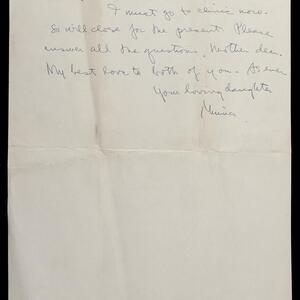 I must go to clinic now.
So will close for the present. Please
answer all the questions, Mother dear.
My best love to both of you. As ever
Your loving daughter